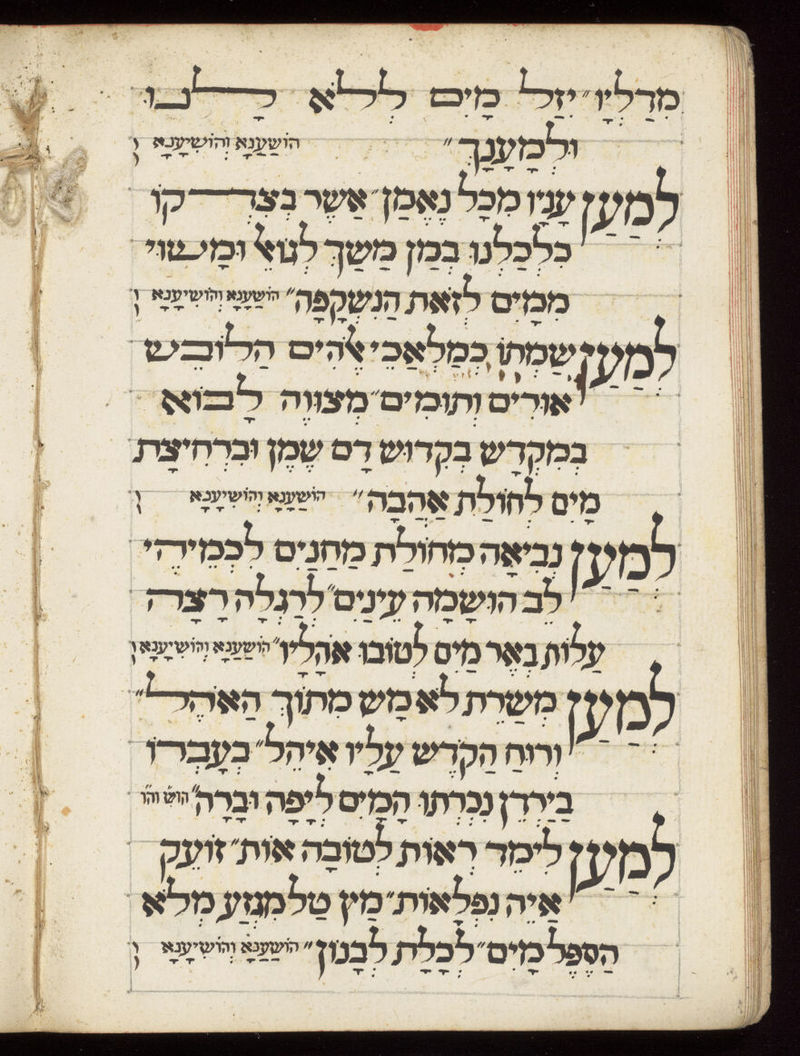 מִדַלְיָו״ יִזַל מַיִם לְלֹא לָבוּ
וּלְמַעֲנָךְ״ הוֹשַׁעֲנָא וְהוֹשִׁיעָנָא
לְמַעַן עָנָיו מִכָּל נֶאֱמַן״ אֲשֶׁר בְּצִדְקוֹ
כִּלְכַּלְנוּ בְּמַן מַשַׁךְ לְגוֹאֵל וּמָשׁוּי
מִמַּיִם לְזֹאת הַנִּשְׁקָפָה״ הוֹשַׁעֲנָא וְהוֹשִׁיעָנָא
לְמַעַן שַׂמְתּוֹ כְּמַלְאֲכֵי אֱלֹהִים הַלּוֹבֵשׁ
אוּרִים וְתוּמִים״ מְצֻוֶּוה לָבוֹא
בְּמִקְדָּשׁ בְּקִדּוּשׁ דָּם שֶׁמֶן וּבִרְחִיצַת
מַיִם לְחוֹלַת אַהֲבָה״ הוֹשַׁעֲנָא וְהוֹשִׁיעָנָא
לְמַעַן נְבִיאָה מְחוֹלַת מַחֲנַיִם לִכְמֵיהֵי
לֵב הוּשָׂמָה עֵינַיִם״ לְרַגְלָהּ רָצָה
עֲלוֹת בְּאֵר מַיִם לְטוֹבוּ אֹהָלָיו״ הוֹשַׁעֲנָא וְהוֹשִׁיעָנָא
לְמַעַן מְשָׁרֵת לֹא מָשׁ מִתּוֹךְ הָאֹהֶל״
וְרוּחַ הַקֹּדֶשׁ עָלָיו אִיהֵל״ בְּעָבְרוֹ
בַיַּרְדֵּן נִכְרְתוּ הַמַּיִם לְיָפָה וּבָרָה״ הוש׳ והו׳
לְמַעַן לִימֵּד רְאוֹת לְטוֹבָה אוֹת״ זוֹעֵק
אַיֵּה נִפְלָאוֹת״ מָץ טַל מִגִּזָּע מְלֹא
הַסֵּפֶל מַיִם״ לְכַלַּת לְבָנוֹן״ הוֹשַׁעֲנָא וְהוֹשִׁיעָנָא